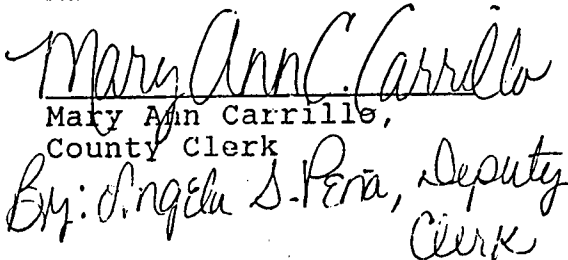 Mary Ann C. Carrillo
Mary Ann Carrillo,
County Clerk
By: Angela S. Peña, Deputy
Clerk